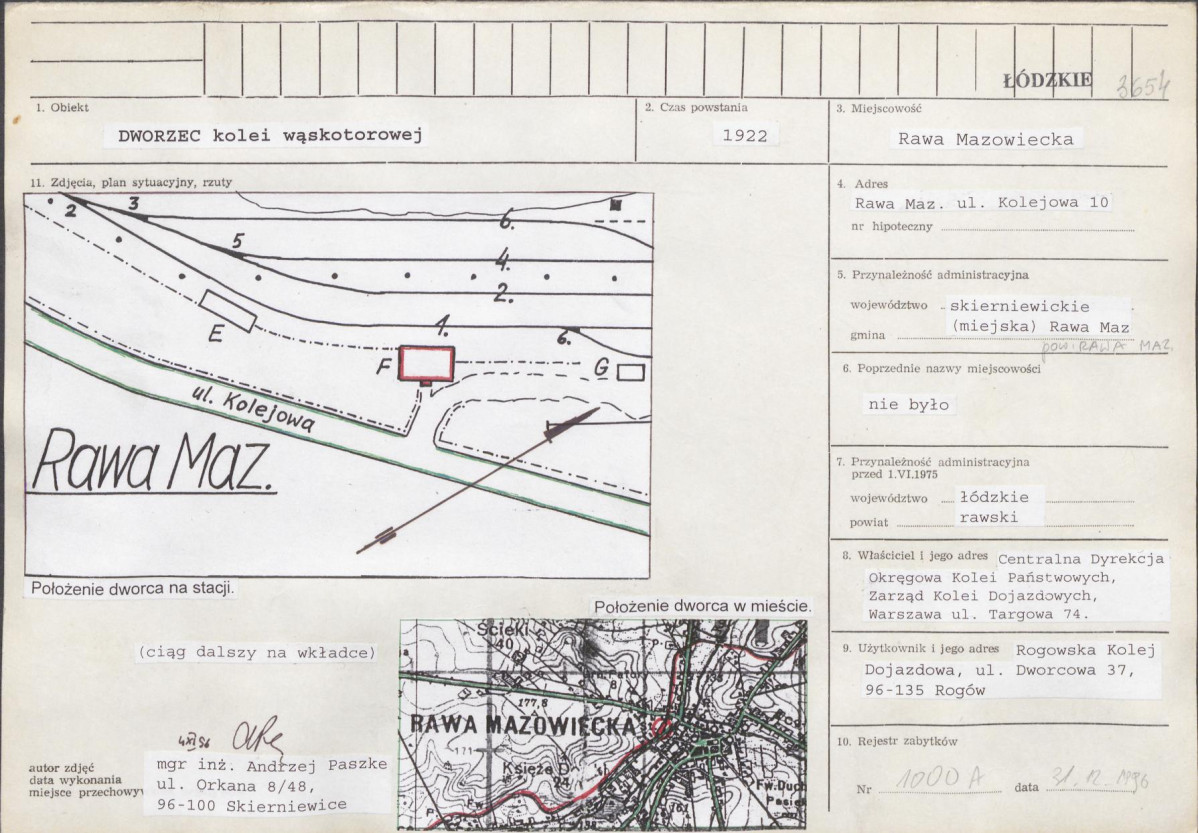 ŁÓDZKIE 3654
1. Obiekt
DWORZEC kolei wąskotorowej
2. Czas powstania
1922
3. Miejscowość
Rawa Mazowiecka
11. Zdjęcia, plan sytuacyjny, rzuty
2 3 6.
5 4.
2.
E 1. 6.
F G
ul. Kolejowa
Rawa Maz.
Położenie dworca na stacji.
4. Adres
Rawa Maz. ul. Kolejowa 10
nr hipoteczny
5. Przynależność administracyjna
województwo skierniewickie
gmina (miejska) Rawa Maz
pow. RAWA MAZ.
6. Poprzednie nazwy miejscowości
nie było
7. Przynależność administracyjna
przed 1.VI.1975
województwo łódzkie
powiat rawski
8. Właściciel i jego adres Centralna Dyrekcja
Okręgowa Kolei Państwowych,
Zarząd Kolei Dojazdowych,
Warszawa ul. Targowa 74.
9. Użytkownik i jego adres Rogowska Kolej
Dojazdowa, ul. Dworcowa 37,
96-135 Rogów
10. Rejestr zabytków
Nr 1000 A data 31.12.1996
Położenie dworca w mieście.
Ścieki
40
8
177,8
RAWA MAZOWIECKA
171
Księże D.
24
Fw.
Fw.Duch
161
(ciąg dalszy na wkładce)
autor zdjęć
data wykonania
miejsce przechowyw
mgr inż. Andrzej Paszke
ul. Orkana 8/48,
96-100 Skierniewice